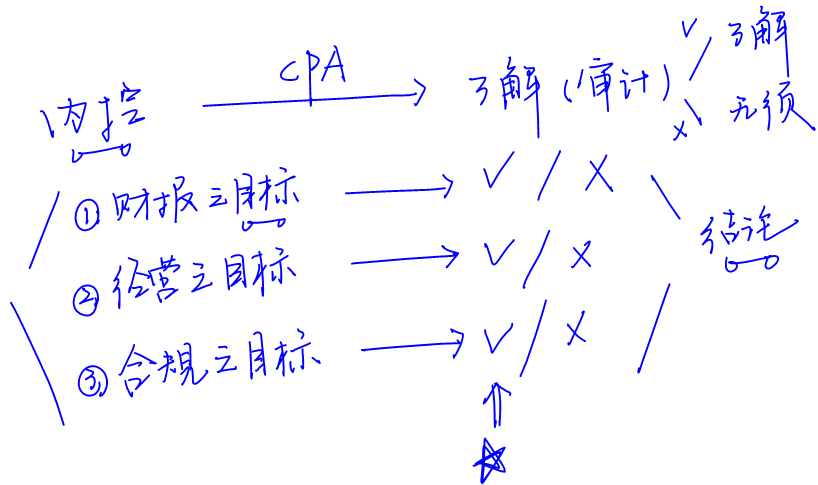 CPA
内控 了解(审计) ✓ 了解
× 无须
①财报之目标 ✓ / ×
②经营之目标 ✓ / ×
③合规之目标 ✓ / ×
结论